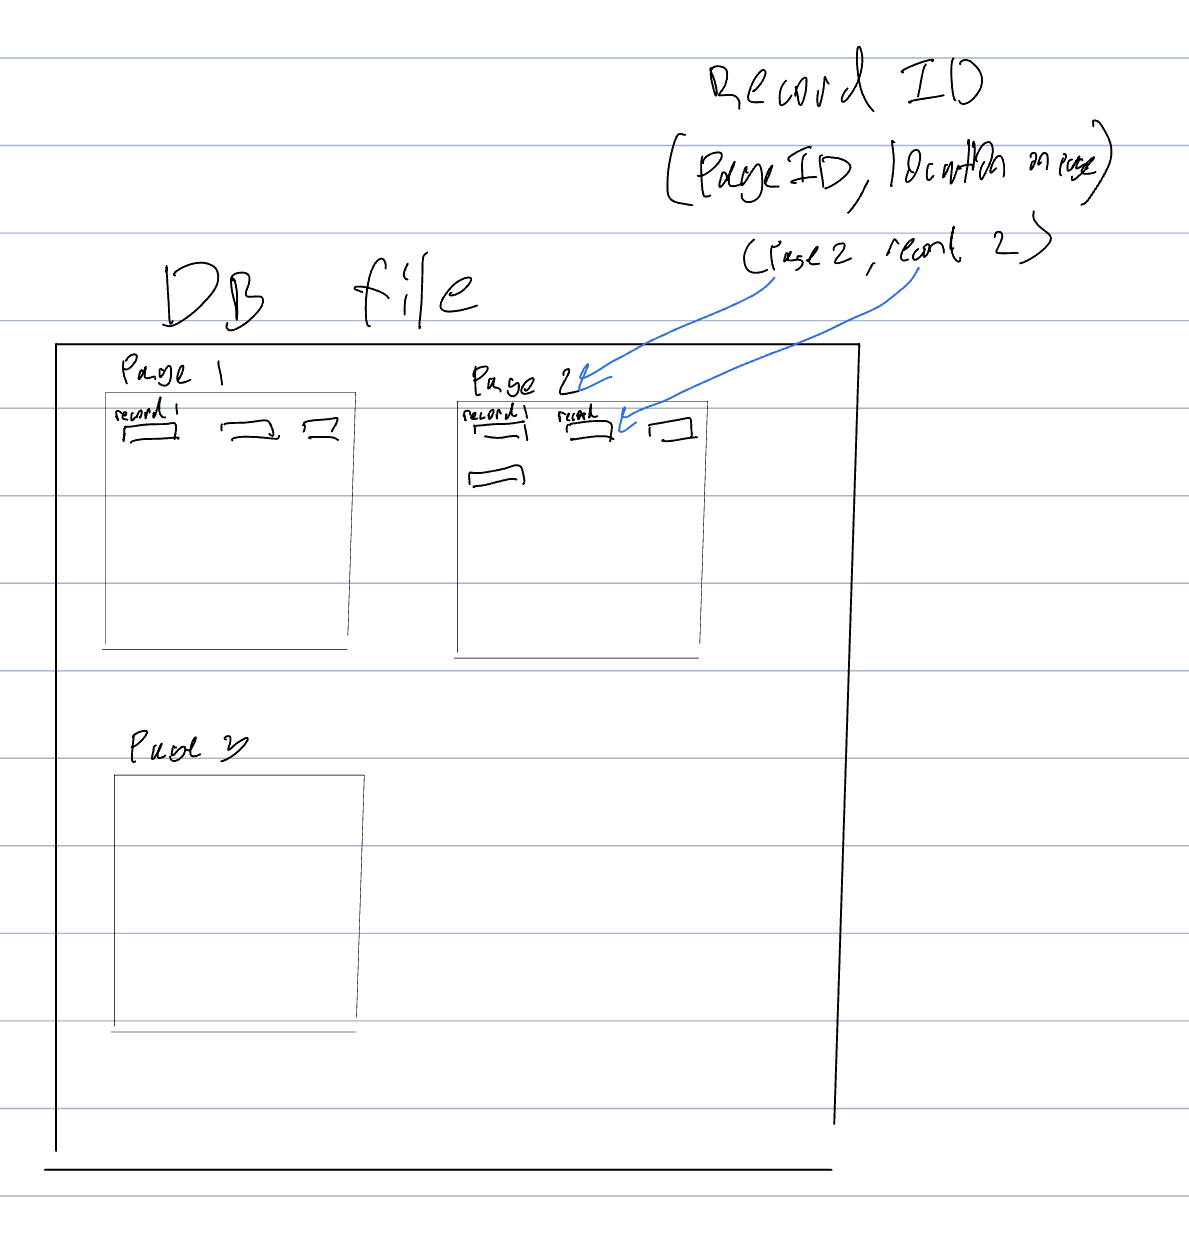 Record ID
(Page ID, location on page)
(Page 2, record 2)
DB file
Page 1
Page 2
record 1
record 1
record
Page 3